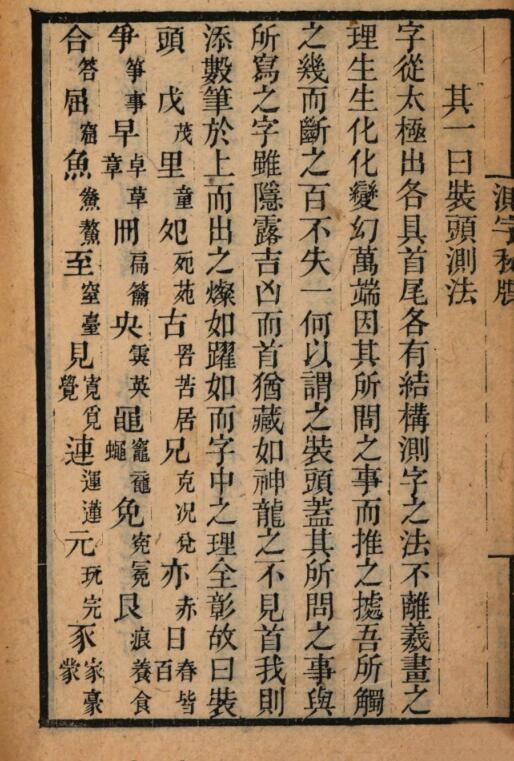 測字秘牒
其一曰裝頭測法
字從太極出各具首尾各有結構測字之法不離羲畫之
理生生化化變幻萬端因其所問之事而推之據吾所觸
之幾而斷之百不失一何以謂之裝頭葢其所問之事與
所寫之字雖隱露吉凶而首猶藏如神龍之不見首我則
添數筆於上而出之燦如躍如而字中之理全彰故曰裝
頭 戊茂 里童 夗宛苑 古罟苦居 兄克况兌 亦赤 日春皆百
爭箏事 早卓草章 冊扁籥 央霙英 黽竈鼀蠅 免寃冕 艮痕養食
合答 屈窟 魚鱻鰲 至窒臺 見寬覓覺 連運蓮 元玩完 豕家豪蒙